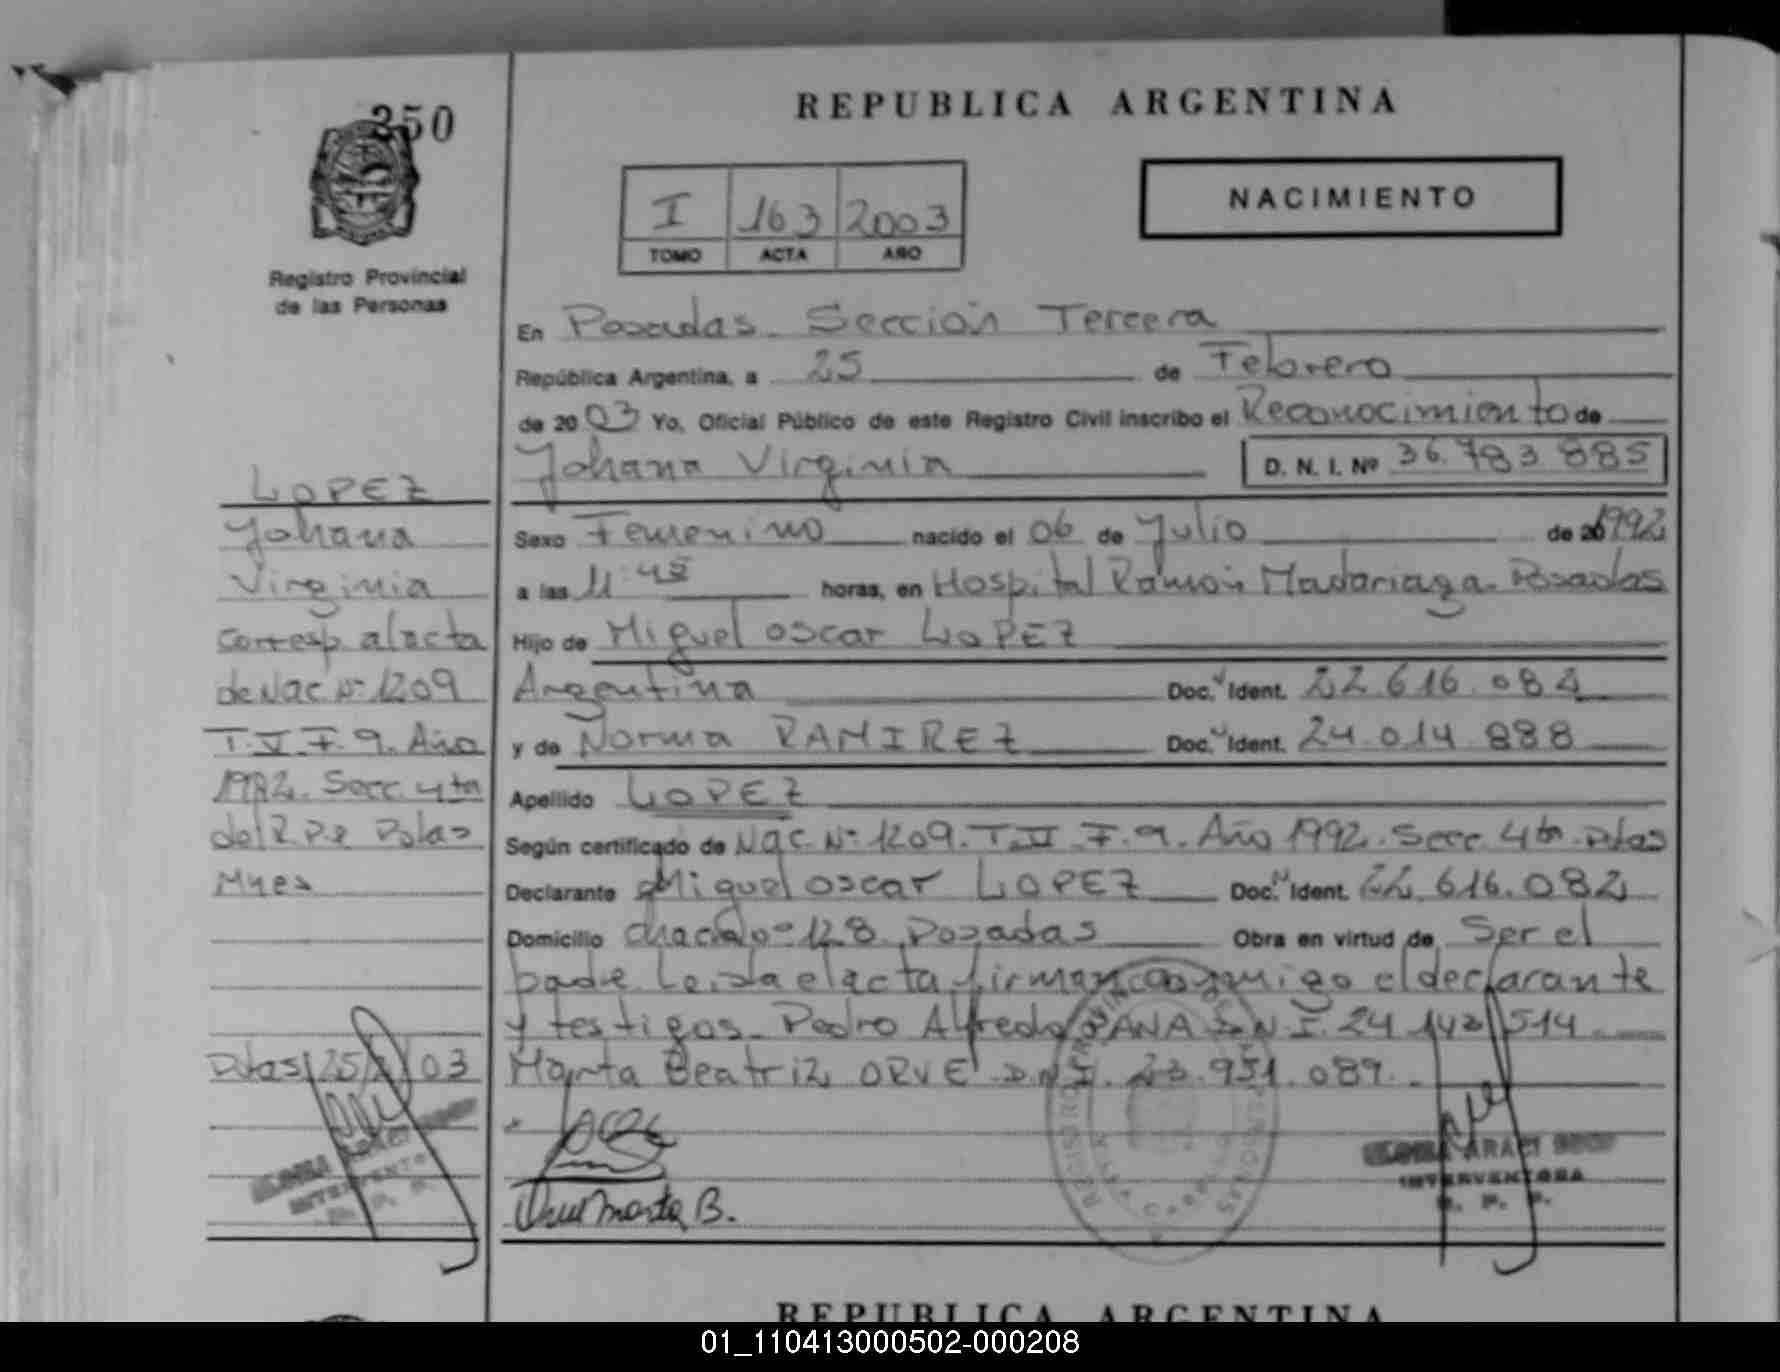 350
REPUBLICA ARGENTINA
I 163 2003
TOMO ACTA AÑO
NACIMIENTO
Registro Provincial
de las Personas
En Posadas. Sección Tercera
República Argentina, a 25 de Febrero
de 2003 Yo, Oficial Público de este Registro Civil inscribo el Reconocimiento de
Johana Virginia D. N. I. Nº 36.783 885
Sexo Femenino nacido el 06 de Julio de 1992
a las 11:45 horas, en Hospital Ramón Madariaga. Posadas
Hijo de Miguel Oscar LOPEZ
Argentina Doc. Ident. 22.616.082
y de Norma RAMIREZ Doc. Ident. 24.014.888
Apellido LOPEZ
Según certificado de Nac. Nº 1209. T.V F. 9. Año 1992. Secc. 4ta. Pdas
Declarante Miguel Oscar LOPEZ Doc. Ident. 22.616.082
Domicilio chacra Nº 128. Posadas Obra en virtud de Ser el
padre. Leida el acta, firman conmigo el declarante
y testigos. Pedro Alfredo D.N.I. 24 142 514
Marta Beatriz ORUE D.N.I. 23.951.089.
LOPEZ
Johana
Virginia
Corresp. al acta
de Nac Nº 1209
T.V F. 9. Año
1992. Secc. 4ta
del R.P.P Pdas
Mnes
Pdas 25/2/03
Orue Marta B.
REGISTRO PROVINCIAL DE LAS PERSONAS
ARACI
INTERVENTORA
R. P. P.
INTERVENTORA
R. P. P.
REPUBLICA ARGENTINA
01_110413000502-000208